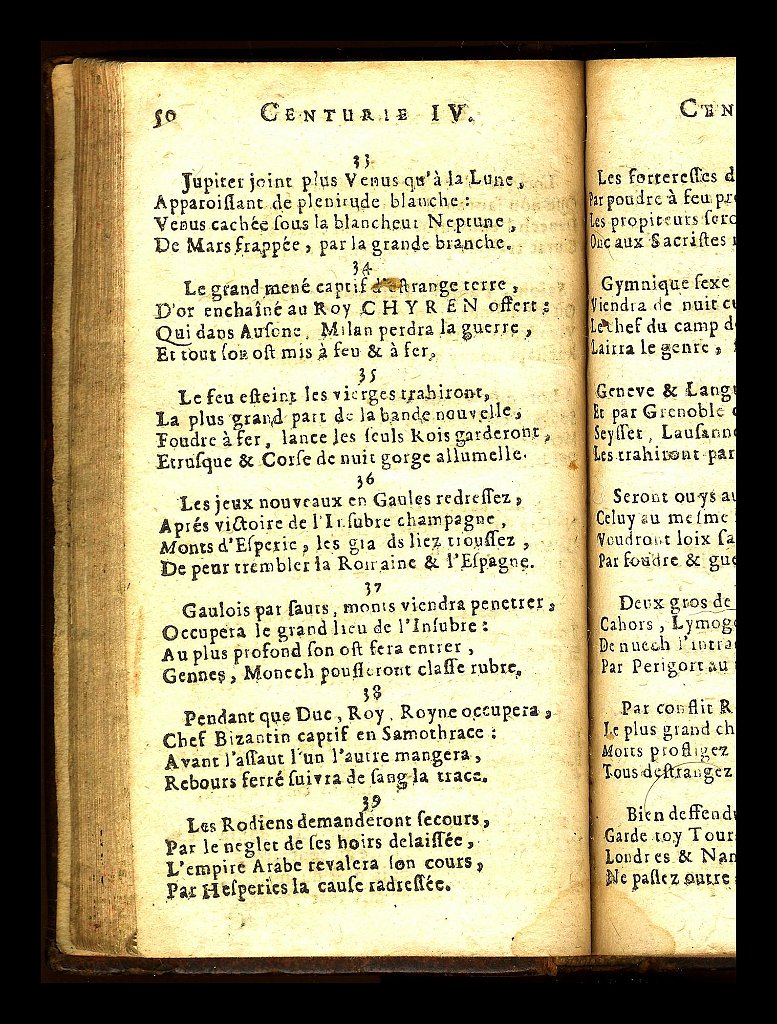 50 CENTURIE IV.
33
Jupiter joint plus Venus qu'à la Lune,
Apparoiſſant de plenitude blanche :
Venus cachée ſous la blancheur Neptune,
De Mars frappée, par la grande branche.
34
Le grand mené captif d'eſtrange terre,
D'or enchaîné au Roy CHYREN offert :
Qui dans Auſone, Milan perdra la guerre,
Et tout ſon oſt mis à feu & à fer.
35
Le feu eſteint les vierges trahiront,
La plus grand part de la bande nouvelle,
Foudre à fer, lance les ſeuls Rois garderont,
Etruſque & Corſe de nuit gorge allumelle.
36
Les jeux nouveaux en Gaules redreſſez,
Aprés victoire de l'Inſubre champagne,
Monts d'Eſperie, les gra ds liez trouſſez,
De peur trembler la Romaine & l'Eſpagne.
37
Gaulois par ſauts, monts viendra penetrer,
Occupera le grand lieu de l'Inſubre :
Au plus profond ſon oſt fera entrer,
Gennes, Monech pouſſeront claſſe rubre.
38
Pendant que Duc, Roy, Royne occupera,
Chef Bizantin captif en Samothrace :
Avant l'aſſaut l'un l'autre mangera,
Rebours ferré ſuivra de ſang la trace.
39
Les Rodiens demanderont ſecours,
Par le neglet de ſes hoirs delaiſſée,
L'empire Arabe revalera ſon cours,
Par Heſperies la cauſe radreſſée.
CEN
Les fortereſſes d
Par poudre à feu pr
Les propiteurs ſero
Onc aux Sacriſtes
Gymnique ſexe
Viendra de nuit
Le chef du camp d
Lairra le genre,
Geneve & Lang
Et par Grenoble
Seyſſet, Lauſann
Les trahiront par
Seront ouys au
Celuy au meſme
Voudront loix ſa
Par foudre & gue
Deux gros de
Cahors, Lymog
De nuech l'intra
Par Perigort au
Par conflit R
Le plus grand ch
Morts profligez
Tous deſtrangez
Bien deffend
Garde toy Tour
Londres & Nan
Ne paſſez outre